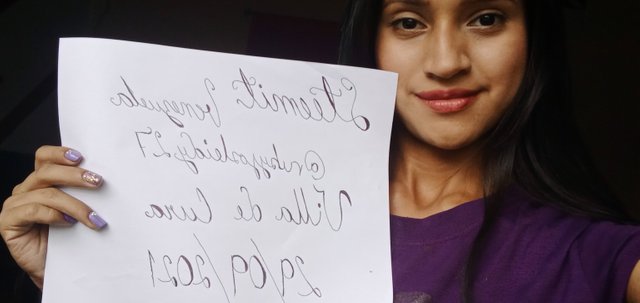 Steemit Venezuela
Villa de Cura
29/09/2021